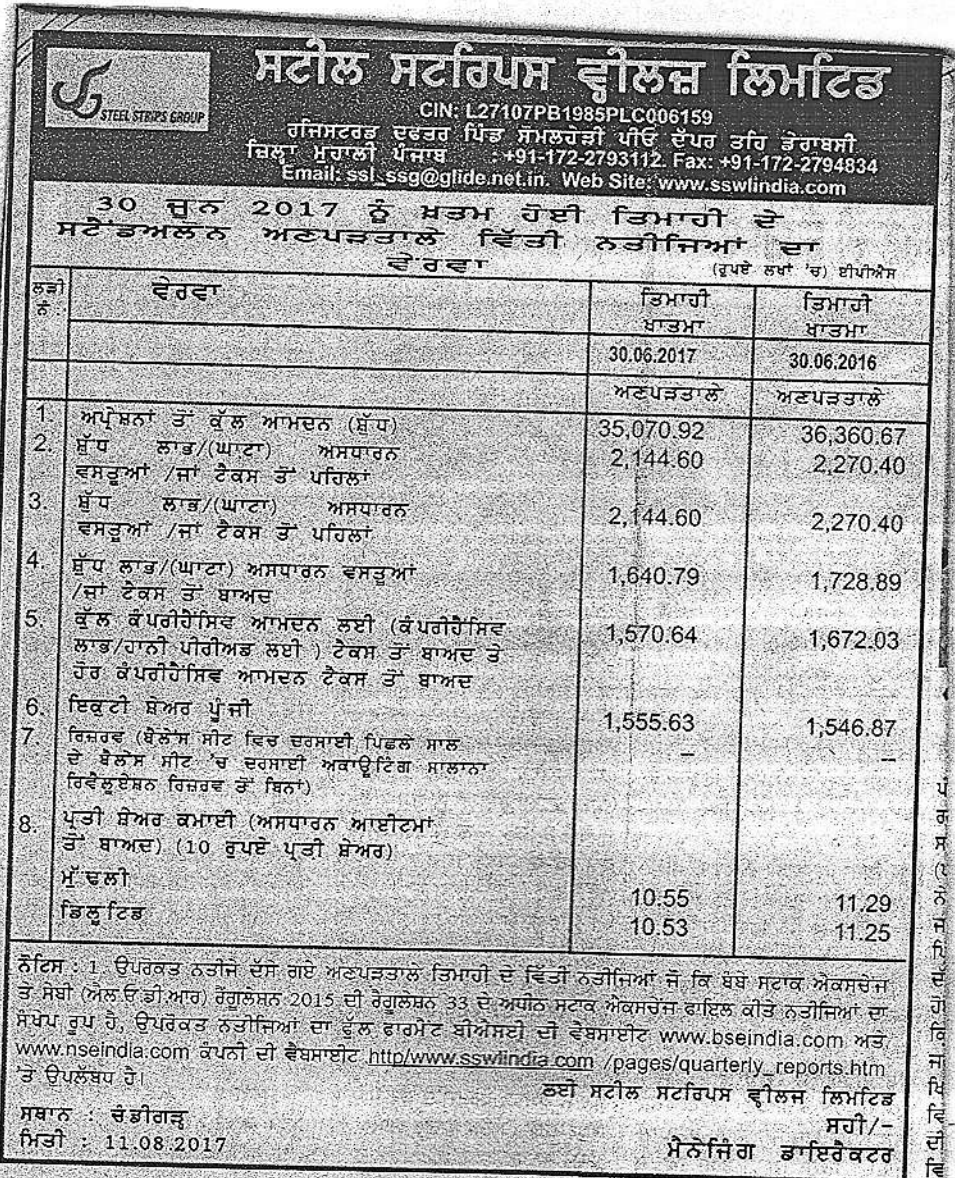 ਸਟੀਲ ਸਟਰਿਪਸ ਵ੍ਹੀਲਜ਼ ਲਿਮਟਿਡ
STEEL STRIPS GROUP
CIN: L27107PB1985PLC006159
ਰਜਿਸਟਰਡ ਦਫਤਰ ਪਿੰਡ ਸੋਮਲਹੇੜੀ ਪੀਓ ਦੱਪਰ ਤਹਿ ਡੇਰਾਬਸੀ
ਜ਼ਿਲ੍ਹਾ ਮੁਹਾਲੀ ਪੰਜਾਬ :+91-172-2793112. Fax: +91-172-2794834
Email: ssl_ssg@glide.net.in. Web Site: www.sswlindia.com
30 ਜੂਨ 2017 ਨੂੰ ਖ਼ਤਮ ਹੋਈ ਤਿਮਾਹੀ ਦੇ
ਸਟੈਂਡਅਲੋਨ ਅਣਪੜਤਾਲੇ ਵਿੱਤੀ ਨਤੀਜਿਆਂ ਦਾ
ਵੇਰਵਾ
(ਰੁਪਏ ਲਖਾਂ 'ਚ) ਈਪੀਐਸ
ਲੜੀ ਵੇਰਵਾ ਤਿਮਾਹੀ ਤਿਮਾਹੀ
ਨੰ: ਖਾਤਮਾ ਖਾਤਮਾ
30.06.2017 30.06.2016
ਅਣਪੜਤਾਲੇ ਅਣਪੜਤਾਲੇ
1. ਅਪ੍ਰੇਸ਼ਨਾਂ ਤੋਂ ਕੁੱਲ ਆਮਦਨ (ਸ਼ੁੱਧ) 35,070.92 36,360.67
2. ਸ਼ੁੱਧ ਲਾਭ/(ਘਾਟਾ) ਅਸਧਾਰਨ 2,144.60 2,270.40
ਵਸਤੂਆਂ /ਜਾਂ ਟੈਕਸ ਤੋਂ ਪਹਿਲਾਂ
3. ਸ਼ੁੱਧ ਲਾਭ/(ਘਾਟਾ) ਅਸਧਾਰਨ
ਵਸਤੂਆਂ /ਜਾਂ ਟੈਕਸ ਤੋਂ ਪਹਿਲਾਂ 2,144.60 2,270.40
4. ਸ਼ੁੱਧ ਲਾਭ/(ਘਾਟਾ) ਅਸਧਾਰਨ ਵਸਤੂਆਂ 1,640.79 1,728.89
/ਜਾਂ ਟੈਕਸ ਤੋਂ ਬਾਅਦ
5. ਕੁੱਲ ਕੰਪਰੀਹੈਂਸਿਵ ਆਮਦਨ ਲਈ (ਕੰਪਰੀਹੈਂਸਿਵ 1,570.64 1,672.03
ਲਾਭ/ਹਾਨੀ ਪੀਰੀਅਡ ਲਈ ) ਟੈਕਸ ਤੋਂ ਬਾਅਦ ਤੇ
ਹੋਰ ਕੰਪਰੀਹੈਂਸਿਵ ਆਮਦਨ ਟੈਕਸ ਤੋਂ ਬਾਅਦ
6. ਇਕੁਟੀ ਸ਼ੇਅਰ ਪੂੰਜੀ 1,555.63 1,546.87
7. ਰਿਜ਼ਰਵ (ਬੈਲੇਂਸ ਸੀਟ ਵਿਚ ਦਰਸਾਈ ਪਿਛਲੇ ਸਾਲ – –
ਦੇ ਬੈਲੇਂਸ ਸੀਟ 'ਚ ਦਰਸਾਈ ਅਕਾਊਂਟਿੰਗ ਸਾਲਾਨਾ
ਰਿਵੈਲੂਏਸ਼ਨ ਰਿਜ਼ਰਵ ਤੋਂ ਬਿਨਾਂ)
8. ਪ੍ਰਤੀ ਸ਼ੇਅਰ ਕਮਾਈ (ਅਸਧਾਰਨ ਆਈਟਮਾਂ
ਤੋਂ ਬਾਅਦ) (10 ਰੁਪਏ ਪ੍ਰਤੀ ਸ਼ੇਅਰ)
ਮੁੱਢਲੀ 10.55 11.29
ਡਿਲੂਟਿਡ 10.53 11.25
ਨੋਟਿਸ : 1. ਉਪਰੋਕਤ ਨਤੀਜੇ ਦੱਸੇ ਗਏ ਅਣਪੜਤਾਲੇ ਤਿਮਾਹੀ ਦੇ ਵਿੱਤੀ ਨਤੀਜਿਆਂ ਜੋ ਕਿ ਬੰਬੇ ਸਟਾਕ ਐਕਸਚੇਂਜ
ਤੇ ਸੇਬੀ (ਐਲ.ਓ.ਡੀ.ਆਰ) ਰੈਗੂਲੇਸ਼ਨ 2015 ਦੀ ਰੈਗੂਲੇਸ਼ਨ 33 ਦੇ ਅਧੀਨ ਸਟਾਕ ਐਕਸਚੇਂਜ ਫਾਇਲ ਕੀਤੇ ਨਤੀਜਿਆਂ ਦਾ
ਸੰਖੇਪ ਰੂਪ ਹੈ, ਉਪਰੋਕਤ ਨਤੀਜਿਆਂ ਦਾ ਫੁੱਲ ਫਾਰਮੈਟ ਬੀਐਸਈ ਦੀ ਵੈਬਸਾਈਟ www.bseindia.com ਅਤੇ
www.nseindia.com ਕੰਪਨੀ ਦੀ ਵੈਬਸਾਈਟ http/www.sswlindia.com /pages/quarterly_reports.htm
'ਤੇ ਉਪਲੱਬਧ ਹੈ।
ਲਈ ਸਟੀਲ ਸਟਰਿਪਸ ਵ੍ਹੀਲਜ ਲਿਮਟਿਡ
ਸਥਾਨ : ਚੰਡੀਗੜ੍ਹ ਸਹੀ/-
ਮਿਤੀ : 11.08.2017 ਮੈਨੇਜਿੰਗ ਡਾਇਰੈਕਟਰ